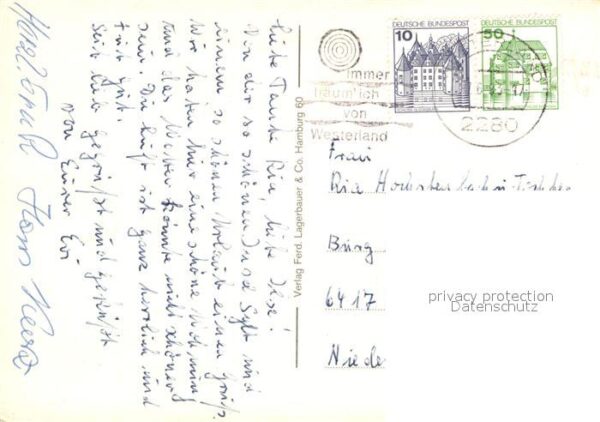 Liebe Tante Ria, liebe Ilse!
Von der so schönen Insel Sylt und
einem so schönen Urlaub einen Gruß.
Wir haben hier eine schöne Wohnung
und das Wetter könnte nicht schöner
sein. Die Luft ist ganz herrlich und
tut gut.
Seid lieb gegrüßt und geküßt
von Eurer Evi
Hans
Verlag Ferd. Lagerbauer & Co. Hamburg 60
10
DEUTSCHE BUNDESPOST
50
DEUTSCHE BUNDESPOST
immer
träum' ich
von
Westerland
2280
Frau
Ria
Burg
6417
Niede
privacy protection
Datenschutz